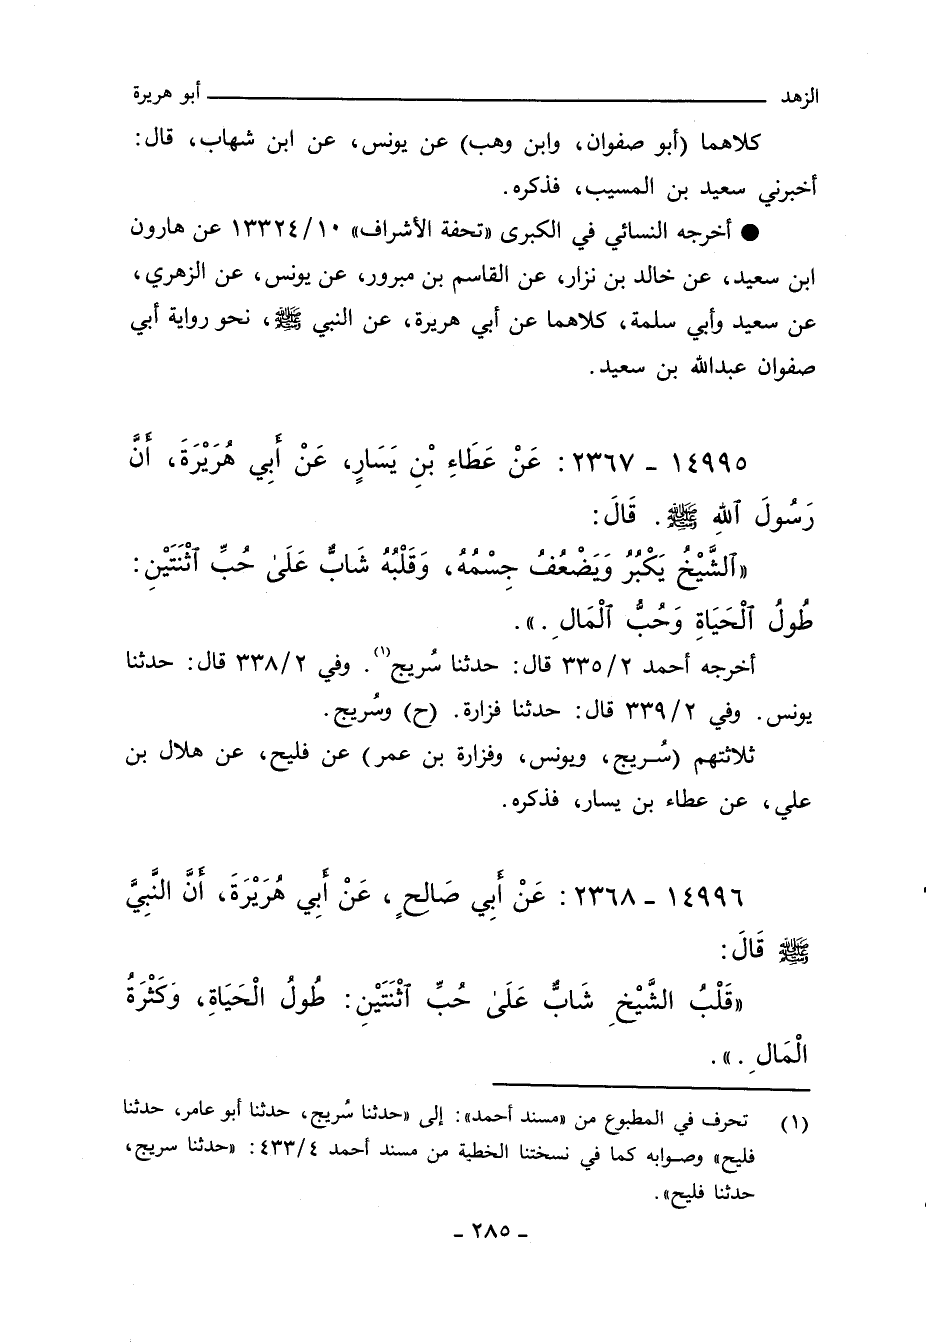 الزهد ــــــــــــــــــــــــــــــــ أبو هريرة
كلاهما (أبو صفوان، وابن وهب) عن يونس، عن ابن شهاب، قال:
أخبرني سعيد بن المسيب، فذكره.
● أخرجه النسائي في الكبرى «تحفة الأشراف» ١٣٣٢٤/١٠ عن هارون
ابن سعيد، عن خالد بن نزار، عن القاسم بن مبرور، عن يونس، عن الزهري،
عن سعيد وأبي سلمة، كلاهما عن أبي هريرة، عن النبي ﷺ، نحو رواية أبي
صفوان عبدالله بن سعيد.
١٤٩٩٥ - ٢٣٦٧: عَنْ عَطَاءِ بْنِ يَسَارٍ، عَنْ أَبِي هُرَيْرَةَ، أَنَّ
رَسُولَ ٱللهِ ﷺ. قَالَ:
«ٱلشَّيْخُ يَكْبُرُ وَيَضْعُفُ جِسْمُهُ، وَقَلْبُهُ شَابٌّ عَلَىٰ حُبِّ ٱثْنَتَيْنِ:
طُولُ ٱلْحَيَاةِ وَحُبُّ ٱلْمَالِ.».
أخرجه أحمد ٣٣٥/٢ قال: حدثنا سُريج(١). وفي ٣٣٨/٢ قال: حدثنا
يونس. وفي ٣٣٩/٢ قال: حدثنا فزارة. (ح) وسُريج.
ثلاثتهم (سُريج، ويونس، وفزارة بن عمر) عن فليح، عن هلال بن
علي، عن عطاء بن يسار، فذكره.
١٤٩٩٦ - ٢٣٦٨: عَنْ أَبِي صَالِحٍ، عَنْ أَبِي هُرَيْرَةَ، أَنَّ النَّبِيَّ
ﷺ قَالَ:
«قَلْبُ الشَّيْخِ شَابٌّ عَلَىٰ حُبِّ ٱثْنَتَيْنِ: طُولُ الْحَيَاةِ، وَكَثْرَةُ
الْمَالِ.».
(١) تحرف في المطبوع من «مسند أحمد»: إلى «حدثنا سُريج، حدثنا أبو عامر، حدثنا
فليح» وصوابه كما في نسختنا الخطية من مسند أحمد ٤٣٣/٤: «حدثنا سريج،
حدثنا فليح».
- ٢٨٥ -